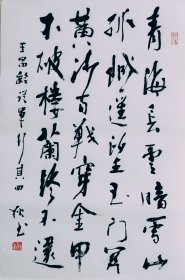 青海长云暗雪山
孤城遥望玉门关
黄沙百战穿金甲
不破楼兰终不还
王昌龄从军行其四